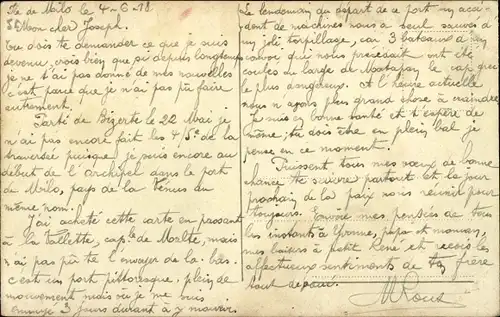 Ile de Milo le 4-6-18
Mon cher Joseph.
Tu dois te demander ce que je suis
devenu, vois bien que si depuis longtemps
je ne t'ai pas donné de mes nouvelles
c'est parce que je n'ai pas pu faire
autrement.
Parti de Bizerte le 22 Mai je
n'ai pas encore fait les 4/5e de la
traversée puisque je suis encore au
début de l'archipel dans le port
de Milo, pays de la Vénus du
même nom.
J'ai acheté cette carte en passant
à la Vallette, cap. de Malte, mais
n'ai pas pu te l'envoyer de là-bas.
c'est un port pittoresque, plein de
mouvement mais où je me suis
ennuyé 3 jours durant à y mourir.
Le lendemain du départ de ce port un acci-
dent de machines nous a seul sauvés d'
un joli torpillage, car 3 bateaux d'un
convoi qui nous précédait ont été
coulés au large de Matapan le cap
le plus dangereux. A l'heure actuelle
nous n'avons plus grand chose à craindre
Je suis en bonne santé et t'espère de
même, tu dois être en plein bal je
pense en ce moment.
Puissent tous mes vœux de bonne
chance te suivre partout et la
prochain de la paix nous réunir pour
toujours. Envoie mes pensées de tous
les instants à Yvonne, papa et maman,
mes baisers à petit René et reçois les
affectueux sentiments de ton frère
tout dévoué.